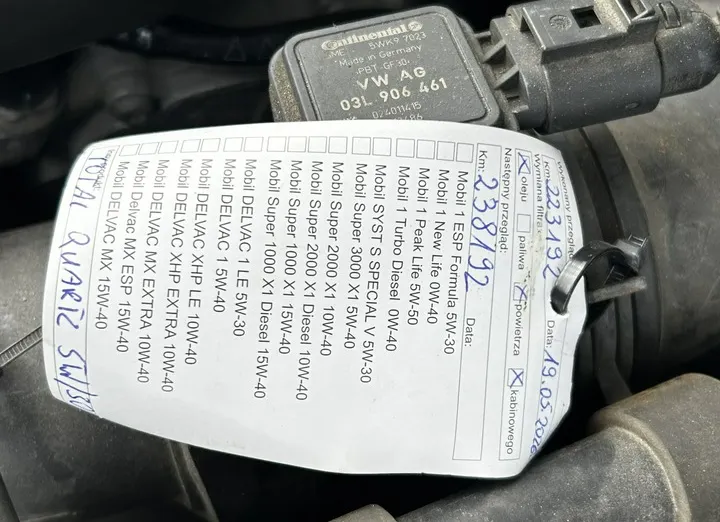 Continental
5WK9 7023
Made in Germany
›PBT GF30‹
VW AG
03L 906 461
024011415
Wykonany przegląd:
Km: 223192 Data: 19.05.
Wymiana filtra:
oleju paliwa powietrza kabinowego
Następny przegląd:
Km: 238192 Data:
Mobil 1 ESP Formula 5W-30
Mobil 1 New Life 0W-40
Mobil 1 Peak Life 5W-50
Mobil 1 Turbo Diesel 0W-40
Mobil SYST S SPECIAL V 5W-30
Mobil Super 3000 X1 5W-40
Mobil Super 2000 X1 10W-40
Mobil Super 2000 X1 Diesel 10W-40
Mobil Super 1000 X1 15W-40
Mobil Super 1000 X1 Diesel 15W-40
Mobil DELVAC 1 LE 5W-30
Mobil DELVAC 1 5W-40
Mobil DELVAC XHP LE 10W-40
Mobil DELVAC XHP EXTRA 10W-40
Mobil DELVAC MX EXTRA 10W-40
Mobil Delvac MX ESP 15W-40
Mobil DELVAC MX 15W-40
TOTAL QUARTZ 5W/30